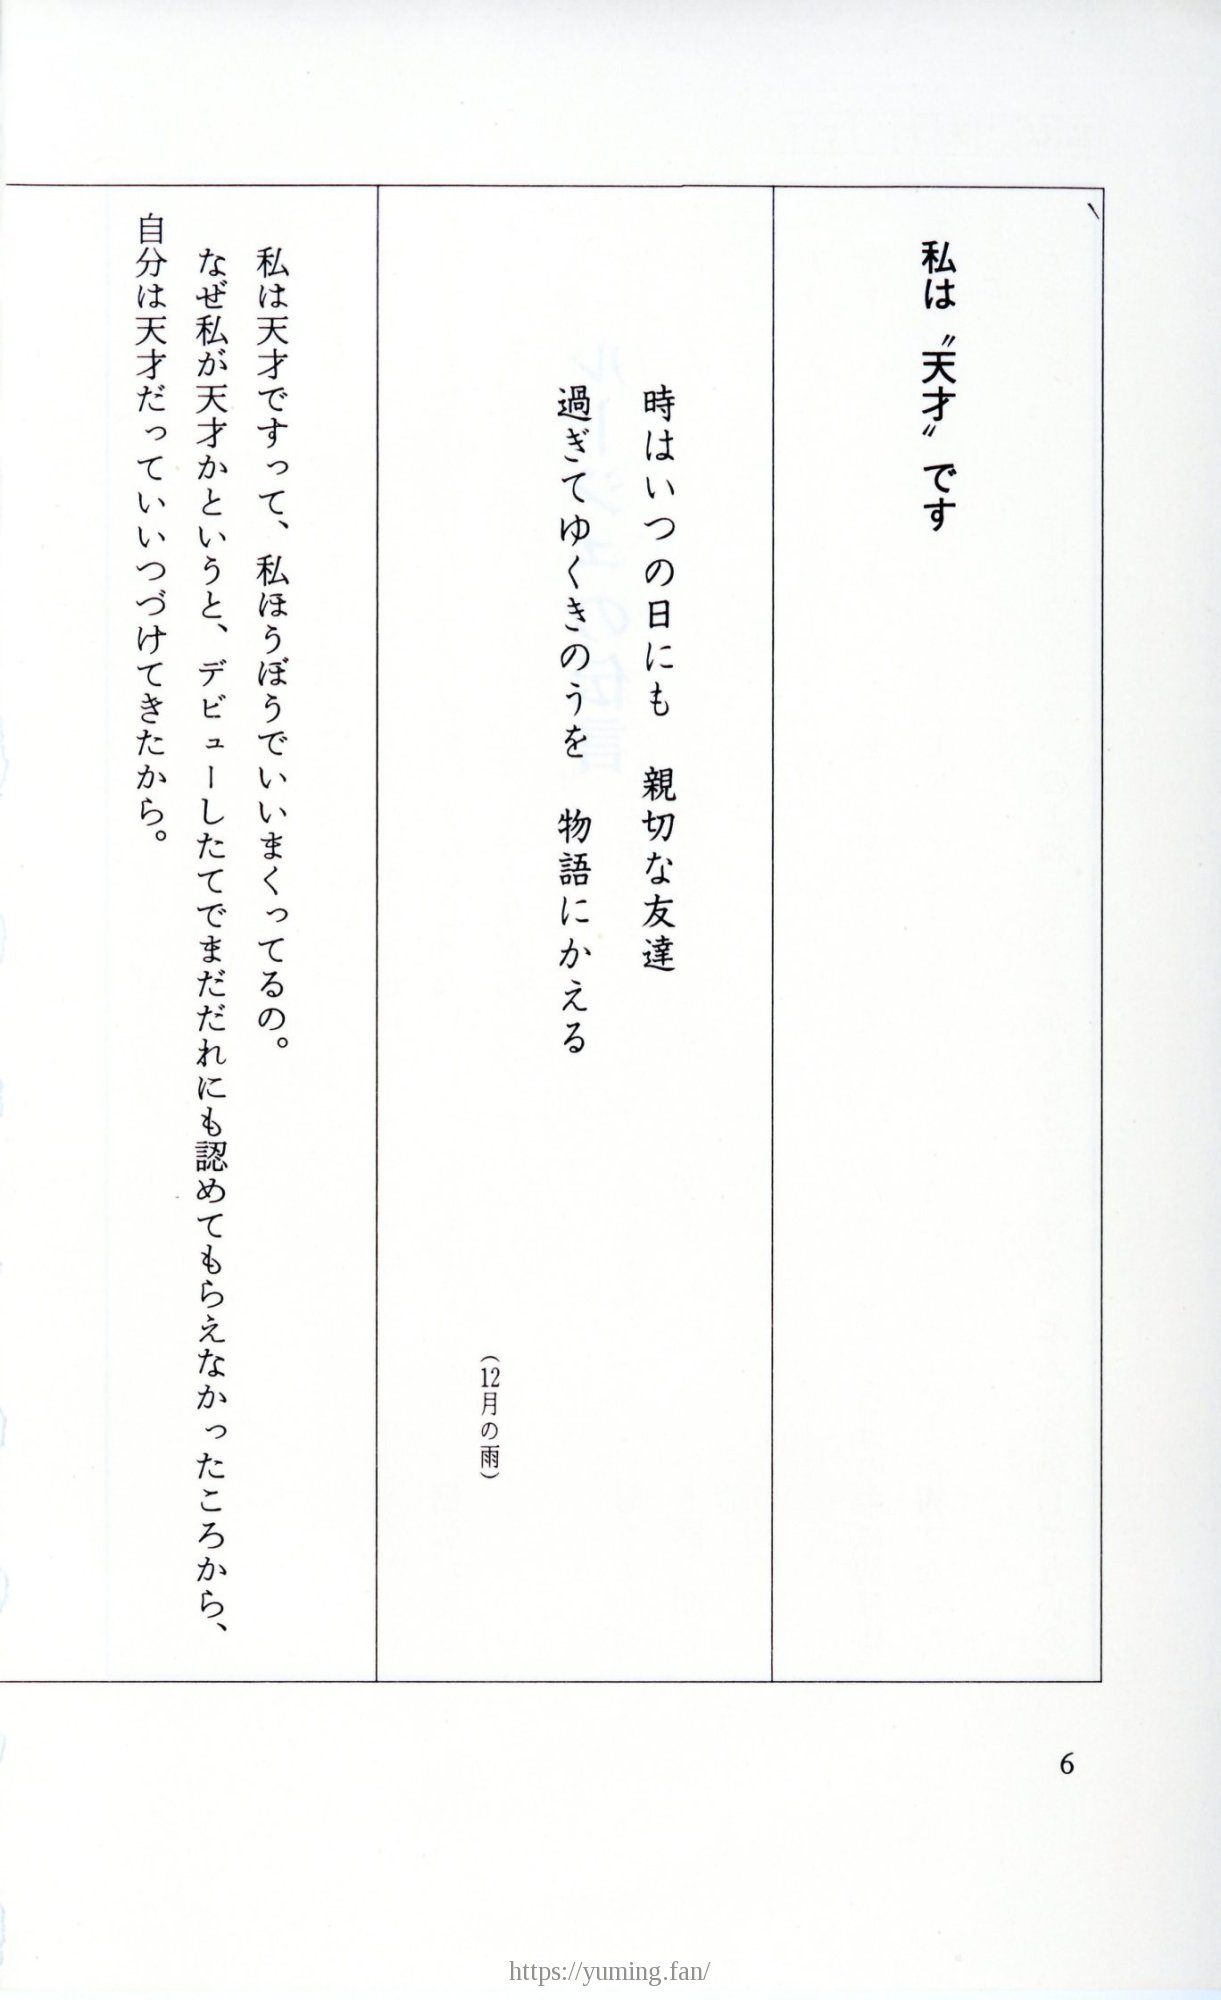 私は〝天才〟です
時はいつの日にも　親切な友達
過ぎてゆくきのうを　物語にかえる
（12月の雨）
私は天才ですって、私ほうぼうでいいまくってるの。
なぜ私が天才かというと、デビューしたてでまだだれにも認めてもらえなかったころから、
自分は天才だっていいつづけてきたから。
6
https://yuming.fan/